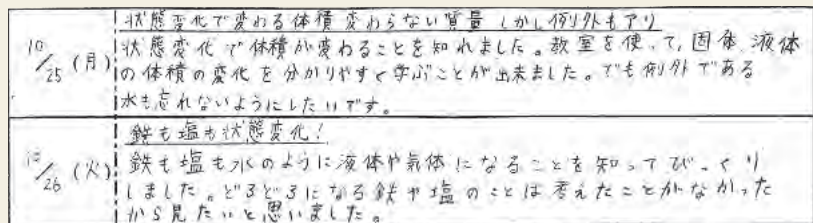 状態変化で変わる体積 変わらない質量 しかし例外もアリ
10/25(月) 状態変化で体積が変わることを知れました。教室を使って、固体、液体
の体積の変化を分かりやすく学ぶことが出来ました。でも例外である
水も忘れないようにしたいです。
鉄も塩も状態変化!
10/26(火) 鉄も塩も水のように液体や気体になることを知ってびっくり
しました。どろどろになる鉄や塩のことは考えたことがなかった
から見たいと思いました。